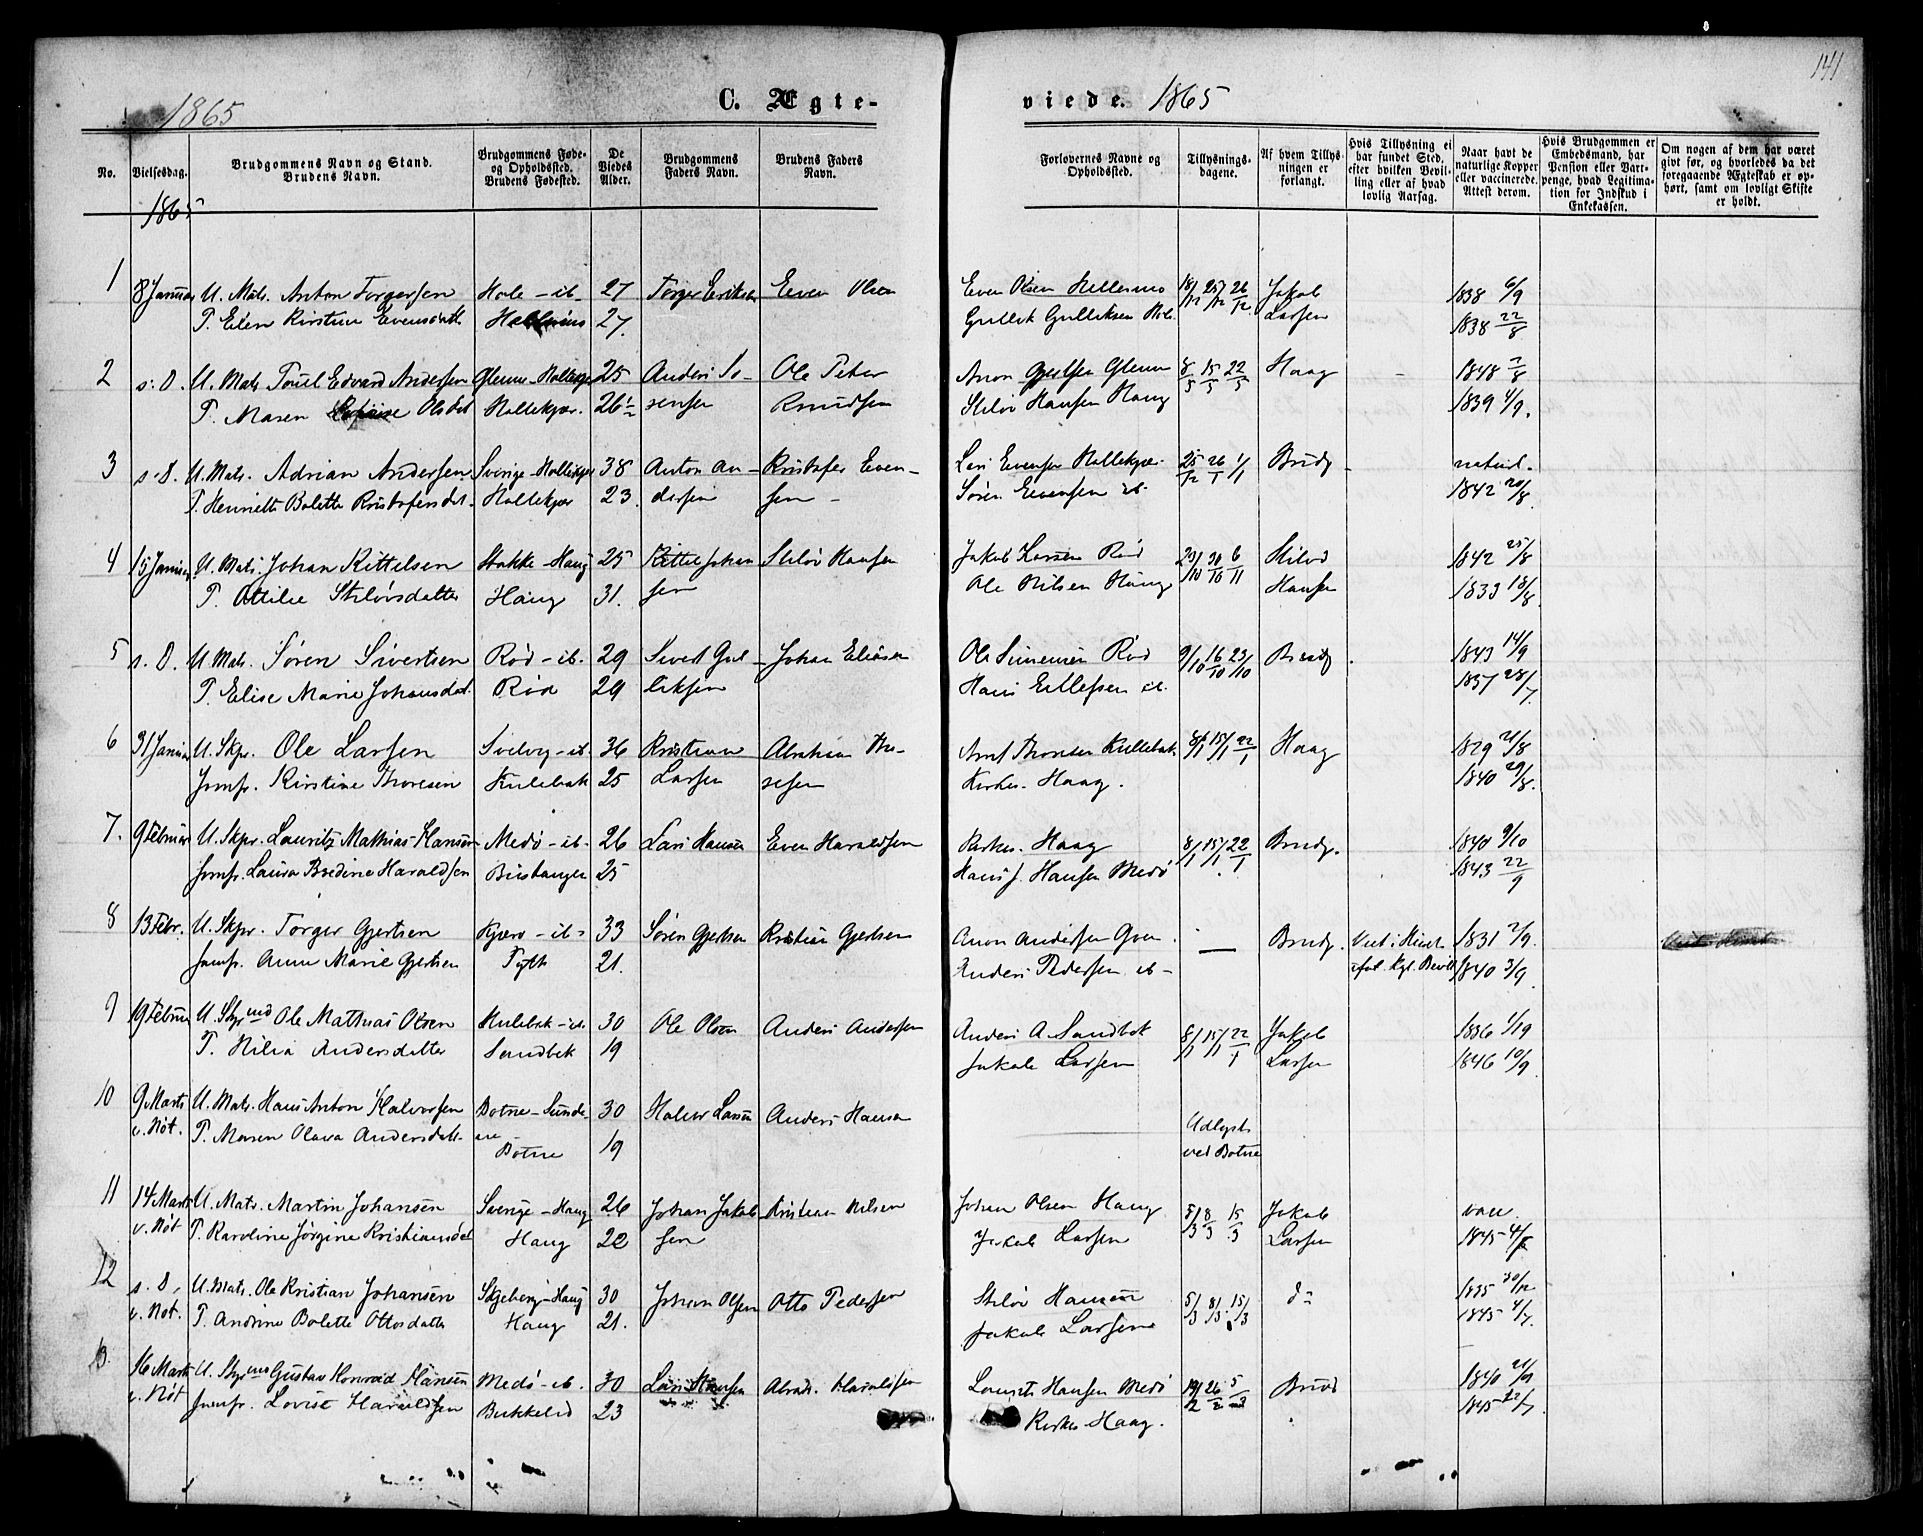 141
1865
C. Ægte-
viede. 1865
No.
Vielsesdag.
Brudgommens Navn og Stand.
Brudens Navn.
Brudgommens Føde-
og Opholdssted.
Brudens Fødested.
De
Viedes
Alder.
Brudgommens
Faders Navn.
Brudens Faders
Navn.
Forlovernes Navne og
Opholdssted.
Tillysnings-
dagene.
Af hvem Tillys-
ningen er
forlangt.
Hvis Tillysning ei
har fundet Sted,
efter hvilken Bevil-
ling eller af hvad
lovlig Aarsag.
Naar havt de
naturlige Kopper
eller vaccinerede.
Attest derom.
Hvis Brudgommen er
Embedsmand, har
Pension eller Var-
penge, hvad Legitima-
tion for Indskud i
Enkekassen.
Om nogen af dem har været
givt før, og hvorledes da det
foregaaende Ægteskab er op-
hørt, samt om lovligt Skifte
er holdt.
1865
1 8 Januar U. Matr. Anton Torgersen Hole - ib. 27 Torger Eriksen Even Olsen Even Olsen Hellesmo 18/12 25/12 26/12 Jakob 1838 6/9
P. Elen Kirstine Evensdatt 27. Gullik Gulliksen Larsen 1838 22/8
2 s. D. U. Matr. Edvard Andersen Glenne - Hollekjær 25 Anders Sø- Ole Peter Aron Gjertsen Glenne 8/5 15/5 22/5 Haag 1848 2/8
P. Maren Olsdat Hollekjær. 26 1/2 rensen Knudsen Stilov Hansen Haug 1839 4/9.
3 s. D. U. Matr. Adrian Andersen Sverige - Hollekjær 38 Anton An- Kristofer Even- Lars Evensen Hollekjær 25/12 26/1 1/1 Brudg naturl.
P. Henriette Bolette Kristofersdat. Hollekjær 23 dersen sen - Søren Evensen ib. 1842 20/8
4 15 Januar U. Matr. Johan Kittelsen Stokke - Haug 25 Kittel Johan- Stilov Hansen Jakob Larsen Rød 23/10 30/10 6/11 Stilov 1842 25/8
P. Ottilie Stilovsdatter Haug 31. sen Ole Nilsen Haug Hansen 1833 18/8
5 s. D. U. Matr. Søren Sivertsen Rød - ib. 29 Sivert Gul- Johan Eliasen Ole Simensen Rød 9/10 16/10 23/10 Brudg 1843 14/9
P. Elise Marie Johansdat. Rød 29 liksen Hans Ellefsen ib. 1837 28/7.
6 31 Januar U. Skpr. Ole Larsen Svelvig - ib. 36 Kristian Abraham Tho- Arnt Thoresen Kullebak 8/1 15/1 22/1 Haag 1829 21/8
Jomfr. Kirstine Thoresen Kulebak 25 Larsen resen Kirkes. Haag. 1840 29/8.
7. 9 Februar U. Skpr. Lauritz Mathias Hansen Medø - ib. 26 Lars Hansen Even Haraldsen Kirkes. Haag 8/1 15/1 22/1 Brudg. 1840 9/10
Jomfr. Laura Bredine Haraldsen 25 Hans J. Hansen Medø 1843 22/9
8 13 Febr. U. Skpr. Torger Gjertsen Kjærø - ib. 33 Søren Gjertsen Kristian Gjertsen Aron Andersen — Brudg. Viet i Huset 1831 2/9.
Jomfr. Anne Marie Gjertsen 21. Anders Pedersen ib - Kgl. Bevill 1840 3/9.
9 19 Februar U. Styrmd Ole Mathias Olsen Kulebak - ib. 30 Ole Olsen Anders Andersen Anders A. Sandbek 8/1 15/1 22/1 Jakob 1836 1/19
P. Nilia Andersdatter Sandbek 19 Jakob Larsen Larsen 1846 10/9.
10 9 Marts U. Matr. Hans Anton Halvorsen Botne - Sunde- 30 Halvor Larsen Anders Hansen Udlyst
v. Nøt. P. Maren Olava Andersdatt. Botne 19 ved Botne
11 14 Marts U. Matr. Martin Johansen Sverige - Haug 26 Johan Jakob- Kristian Nilsen Johan Olsen Haug 5/3 8/3 15/3 Jakob vacc.
v. Nøt P. Karoline Jørgine Kristiansdat Haug 22 sen Jakob Larsen Larsen 1845
12 s. D. U. Matr. Ole Kristian Johansen Skjeberg - Haug 30 Johan Olsen Otto Pedersen Stilov Hansen 5/3 8/3 15/3 do 1835 30/12
v. Nøt. P. Andrine Bolette Ottosdatter Haug 21. Jakob Larsen 1845 4/7.
13. 16 Marts U. Styrmd Gustav Konrad Hansen Medø - ib. 30 Lars Hansen Abrah. Haraldsen Lauritz Hansen Medø 19/2 26/2 5/3 Brudg 1846
v. Nøt Jomfr. Lovise Haraldsen Bukkelid 23 Kirkes Haag. 1845 22/7